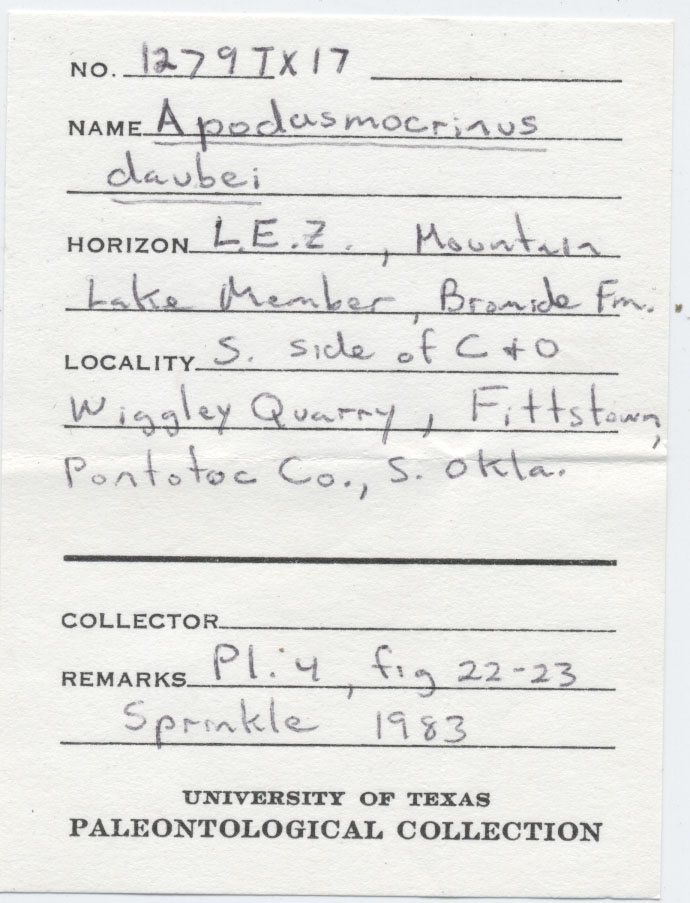 NO. 1279TX17
NAME Apodasmocrinus
daubei
HORIZON L.E.Z., Mountain
Lake Member, Bromide Fm.
LOCALITY S. side of C + O
Wiggley Quarry, Fittstown,
Pontotoc Co., S. Okla.
COLLECTOR
REMARKS Pl. 4, fig 22-23
Sprinkle 1983
UNIVERSITY OF TEXAS
PALEONTOLOGICAL COLLECTION